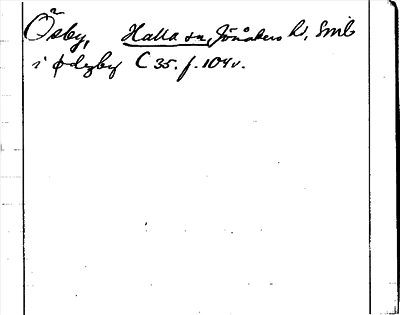 Ösby, Halla sn, Jönåkers hd, Smb
i ødzby C 35. f. 104v.